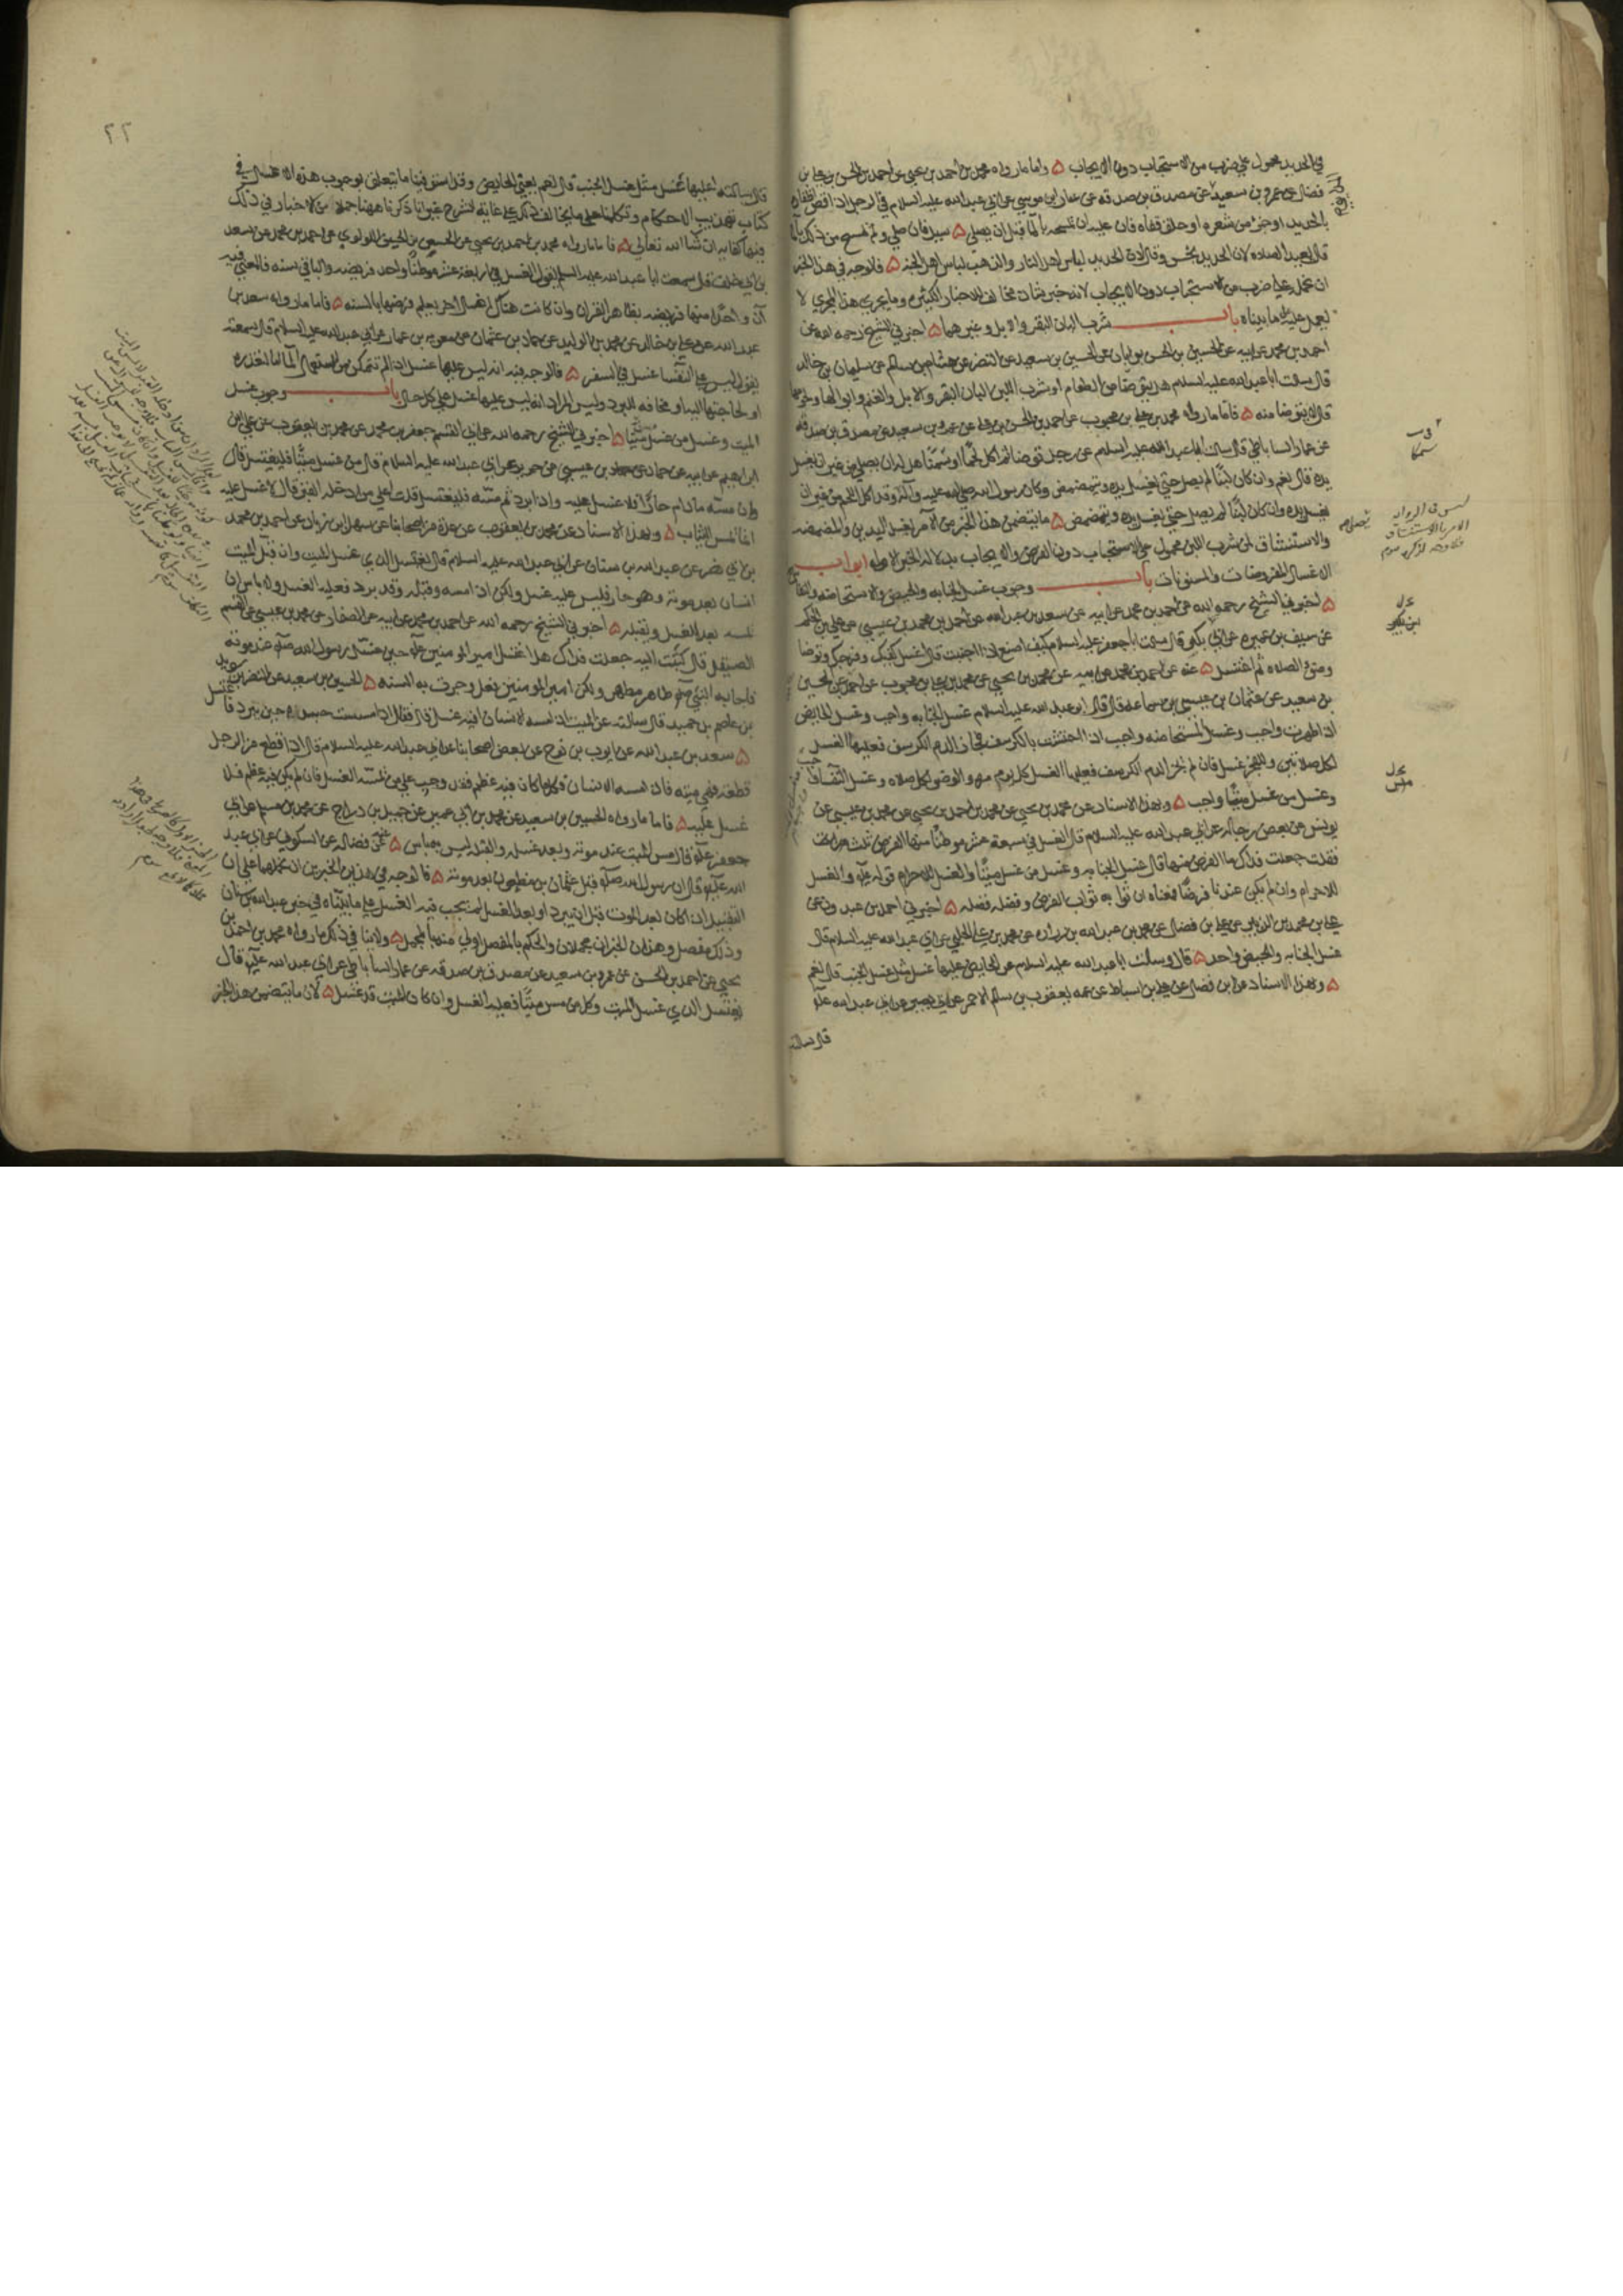 في الحديد محمول علي ضرب من الاستحباب دون الايجاب ۵ واما ما رواه محمد بن احمد بن يحيي عن احمد بن الحسن بن علي بن
فضال عن عمرو بن سعيد عن مصدق بن صدقه عن عمار بن موسي عن ابي عبد الله عليه السلام في الرجل اذا قص اظفاره
بالحديد او جز من شعره او حلق قفاه فان عليه ان يمسحه بالمآ قبل ان يصلي ۵ سيل فان صلي ولم يمسح من ذلك بالمآ
قال يعيد الصلاه لان الحديد نجس وقال لان الحديد لباس اهل النار والذهب لباس اهل الجنه ۵ فالوجه في هذا الخبر
ان نحمله علي ضرب من الاستحباب دون الايجاب لانه خبر شاذ مخالف للاخبار الكثيره وما يجري هذا المجري لا
يعمل عليه ما بيناه باب شرب البان البقر والابل وغيرهما ۵ اخبرني الشيخ رحمه الله عن
احمد بن محمد عن ابيه عن الحسين بن الحسن بن ابان عن الحسين بن سعيد عن النضر عن هشام بن سالم عن سليمان بن خالد
قال سالت ابا عبد الله عليه السلام هل يتوضا من الطعام او شرب اللبن البان البقر والابل والغنم وابوالها ولحومها
قال لا يتوضا منه ۵ فاما ما رواه محمد بن علي بن محبوب عن احمد بن الحسن بن علي عن عمرو بن سعيد عن مصدق بن صدقه
عن عمار الساباطي قال سالت ابا عبد الله عليه السلام عن رجل توضا ثم اكل لحمًا او سمنًا هل له ان يصلي من غير ان يغسل
يده قال نعم وان كان لبنًا لم يصل حتي يغسل يده ويتمضمض وكان رسول الله صلي الله عليه وآله وقد اكل اللحم من غير ان
يغسل يده وان كان لبنًا لم يصل حتي يغسل يده ويتمضمض ۵ ما يتضمن هذا الخبر من الامر بغسل اليدين والمضمضه
والاستنشاق لمن شرب اللبن محمول علي الاستحباب دون الفرض والايجاب بدلاله الخبر الاول ابواب
الاغسال المفروضات والمسنونات باب وجوب غسل الجنابه والحيض والاستحاضه والنفاس
۵ اخبرني الشيخ رحمه الله عن احمد بن محمد عن ابيه عن سعد بن عبد الله عن احمد بن محمد بن عيسي عن علي بن الحكم
عن سيف بن عميره عن ابي بكر قال سالت ابا جعفر عليه السلام كيف اصنع اذا اجنبت قال اغسل كفيك وفرجك وتوضا
وضوء الصلاه ثم اغتسل ۵ عنه عن احمد بن محمد عن ابيه عن محمد بن يحيي عن محمد بن علي بن محبوب عن احمد عن الحسين
بن سعيد عن عثمان بن عيسي عن سماعه قال قال ابو عبد الله عليه السلام غسل الجنابه واجب وغسل الحايض
اذا طهرت واجب وغسل المستحاضه واجب اذا احتشت بالكرسف فجاز الدم الكرسف فعليها الغسل
لكل صلاتين وللفجر غسل فان لم يجز الدم الكرسف فعليها الغسل كل يوم مره والوضو لكل صلاه وغسل النفسآ
وغسل من غسل ميتًا واجب ۵ وبهذا الاسناد عن محمد بن يحيي عن محمد بن احمد بن يحيي عن محمد بن عيسي عن
يونس عن بعض رجاله عن ابي عبد الله عليه السلام قال الغسل في سبعة عشر موطنًا منها الفرض ثلث
فقلت جعلت فداك ما الفرض منها قال غسل الجنابه وغسل من غسل ميتًا والغسل للاحرام قوله عليه والغسل
للاحرام وان لم يكن عندنا فرضًا فمعناه ان ثوابه ثواب الفرض وفضله فضله ۵ اخبرني احمد بن عبدون عن
علي بن محمد بن الزبير عن علي بن فضال عن محمد بن عبد الله بن زراره عن محمد بن علي الحلبي عن ابي عبد الله عليه السلام قال
غسل الجنابه والحيض واحد ۵ قال وسالت ابا عبد الله عليه السلام عن الحايض عليها غسل مثل غسل الجنب قال نعم
۵ وبهذا الاسناد عن ابن فضال عن علي بن اسباط عن عمه يعقوب بن سالم الاحمر عن ابي بصير عن ابي عبد الله عليه
قال سالته
٢٢
قال سالته اعليها غسل مثل غسل الجنب قال نعم يعني الحايض وقد استوفينا ما يتعلق بوجوب هذه الاغسال في
كتاب تهذيب الاحكام وتكلمنا علي ما يخالف ذلك علي غايه الشرح غير انا ذكرنا ههنا جملا من الاخبار في ذلك
فيها كفايه ان شا الله تعالي ۵ فاما ما رواه محمد بن احمد بن يحيي عن الحسين بن الحسن اللولوي عن احمد بن محمد عن سعد
بن ابي خلف قال سمعت ابا عبد الله عليه السلام يقول الغسل في اربعة عشر موطنًا واحد فريضه والباقي سنه فالمعني فيه
ان واحدًا منها فريضه بظاهر القران وان كانت هناك اغسال اخر يعلم فرضها بالسنه ۵ فاما ما رواه سعد بن
عبد الله عن علي بن خالد عن محمد بن الوليد عن حماد بن عثمان عن معويه بن عمار عن ابي عبد الله عليه السلام قال سمعته
يقول ليس علي النفسا غسل في السفر ۵ فالوجه فيه انه ليس عليها غسل اذا لم تتمكن من استعمال المآ اما لتعذره
او لحاجتها اليه او مخافه البرد وليس المراد انه ليس عليها غسل علي كل حال باب وجوب غسل
الميت وغسل من غسل ميتًا ۵ اخبرني الشيخ رحمه الله عن ابي القسم جعفر بن محمد عن محمد بن يعقوب عن علي بن
ابراهيم عن ابيه عن حماد بن عيسي عن حريز عن ابي عبد الله عليه السلام قال من غسل ميتًا فليغتسل قال
وان مسه ما دام حارًا فلا غسل عليه واذا برد ثم مسه فليغتسل قلت علي من ادخله القبر قال لا غسل عليه
انما يمس الثياب ۵ وبهذا الاسناد عن محمد بن يعقوب عن عدة من اصحابنا عن سهل بن زياد عن احمد بن محمد
بن ابي نصر عن عبد الله بن سنان عن ابي عبد الله عليه السلام قال يغتسل الذي غسل الميت وان قبل الميت
انسان بعد موته وهو حار فليس عليه غسل ولكن اذا مسه وقبله وقد برد فعليه الغسل ولا باس ان
يمسه بعد الغسل ويقبله ۵ اخبرني الشيخ رحمه الله عن احمد بن محمد عن ابيه عن الصفار عن محمد بن عيسي عن القسم
الصيقل قال كتبت اليه جعلت فداك هل اغتسل امير المومنين حين غسل رسول الله عند موته
فاجابه النبي طاهر مطهر ولكن امير المومنين فعل وجرت به السنه ۵ الحسين بن سعيد عن النضر
بن عاصم بن حميد قال سالته عن الميت اذا مسه الانسان افيه غسل قال فقال اذا مسست جسده حين يبرد فاغتسل
۵ سعد بن عبد الله عن ايوب بن نوح عن بعض اصحابنا عن ابي عبد الله عليه السلام قال اذا قطع من الرجل
قطعه فهي ميته فاذا مسه الانسان فكل ما كان فيه عظم فقد وجب علي من مسه الغسل فان لم يكن فيه عظم فلا
غسل عليه ۵ فاما ما رواه الحسين بن سعيد عن محمد بن ابي عمير عن جميل بن دراج عن محمد بن مسلم عن ابي
جعفر قال مس الميت عند موته وبعد غسله والقبله ليس به باس ۵ عنه عن فضاله عن السكوني عن ابي عبد
الله قال ان رسول الله قبل عثمان بن مظعون بعد موته ۵ فالوجه في هذين الخبرين ان نحملهما علي ان
التقبيل اذا كان بعد الموت قبل ان يبرد او بعد الغسل لم يجب فيه الغسل علي ما بيناه في خبر عبد الله بن سنان
وذلك مفصل وهذان الخبران مجملان والحكم بالمفصل اولي منه بالمجمل ۵ ولا ينافي ذلك ما رواه محمد بن احمد بن
يحيي عن احمد بن الحسن عن عمرو بن سعيد عن مصدق بن صدقه عن عمار الساباطي عن ابي عبد الله قال
يغتسل الذي غسل الميت وكل من مس ميتًا فعليه الغسل وان كان الميت قد غسل ۵ لان ما يتضمن هذا الخبر